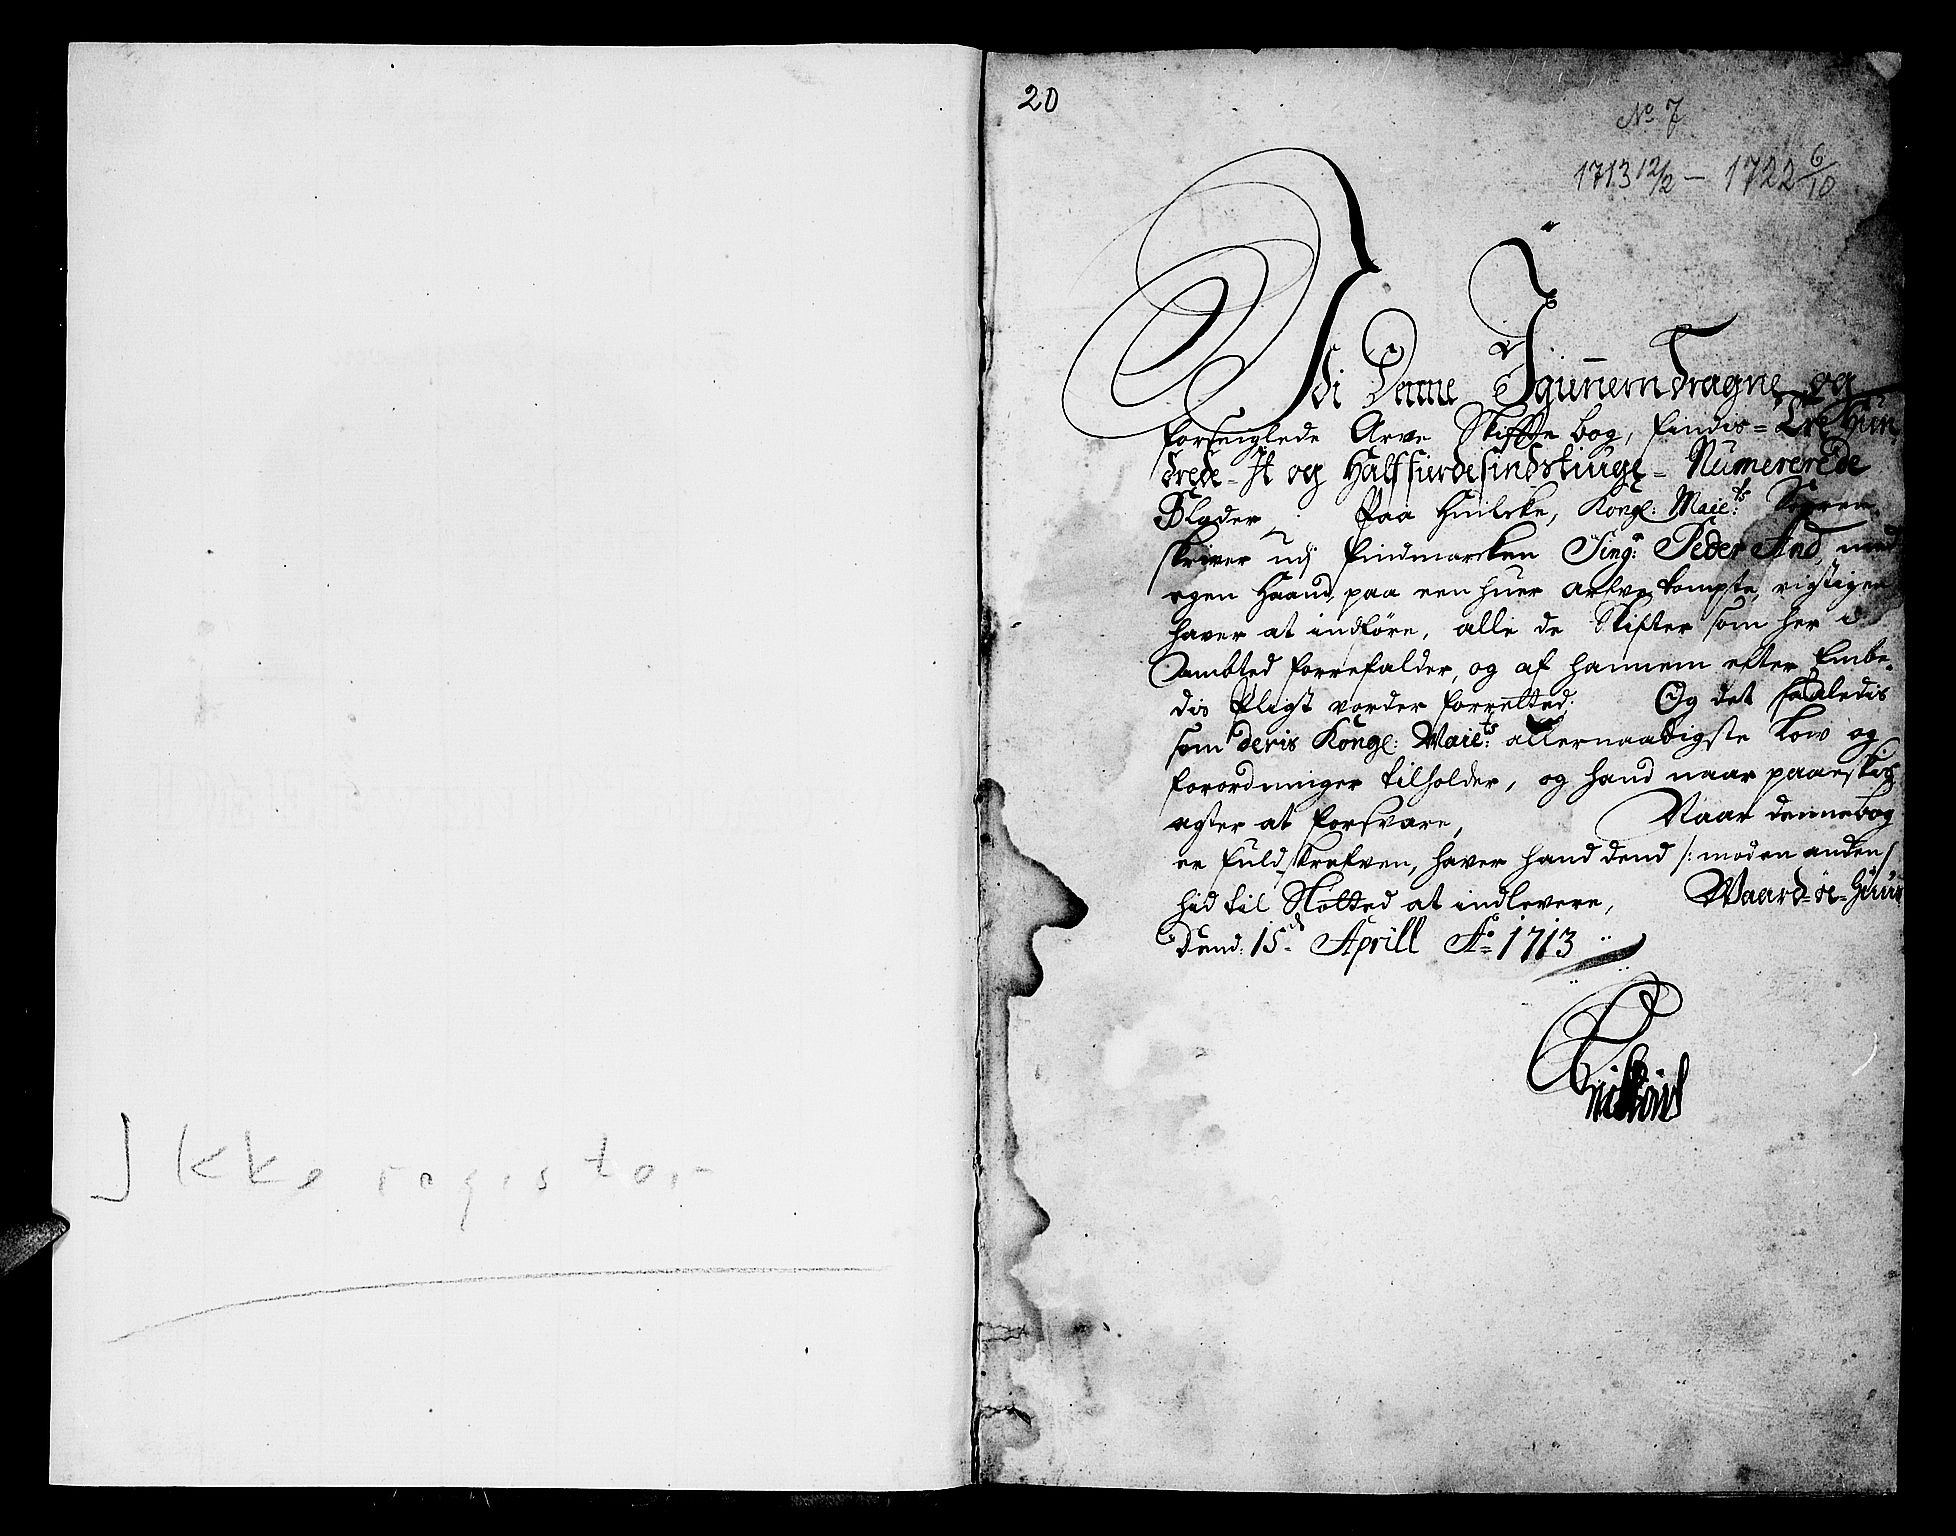 Ikke register
20
No 7
1713 12/2 – 1722 6/10
Udi Denne Igiunemdragne og
forseiglede Arve Skiffte bog, findis = Tre Hun
drede = It og Halffierdesindstiuge = Numererede
Blader, Paa Huilcke, Kongl: Maiets: Soren
skriver udj findmarcken Sing:r Peder And, med
egen Haand, paa een huer artve tompte, rigtigen
haver at indføre, alle de Skifter som her i
Ambted forrefalder, og af hannem efter Embe„
dis Pligt vorder forretted: Og det saaledis
som deris Kongl: Maiets: allernaadigste Low og
forordninger tilholder, og hand naar paaeskis
agter at forsvare, Naar denne bog
er fuldskrefven, haver hand dend /: mod en anden /
hid til Slotted at indlevere, Waard-øe-Huus
Dend: 15de Aprill Ao 1713